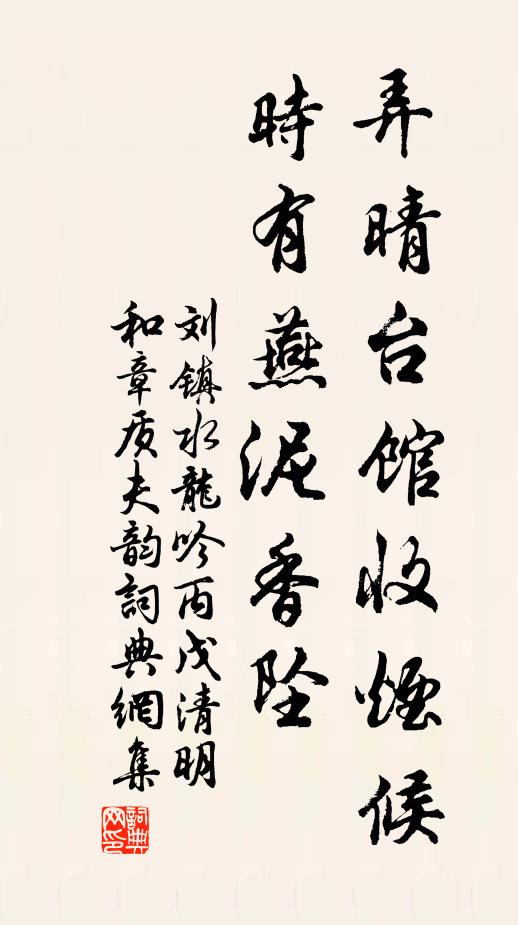 弄晴台馆收煙候
時有燕泥香坠
刘镇水龍吟丙戌清明
和章质夫韵詞典網集
詞典網印